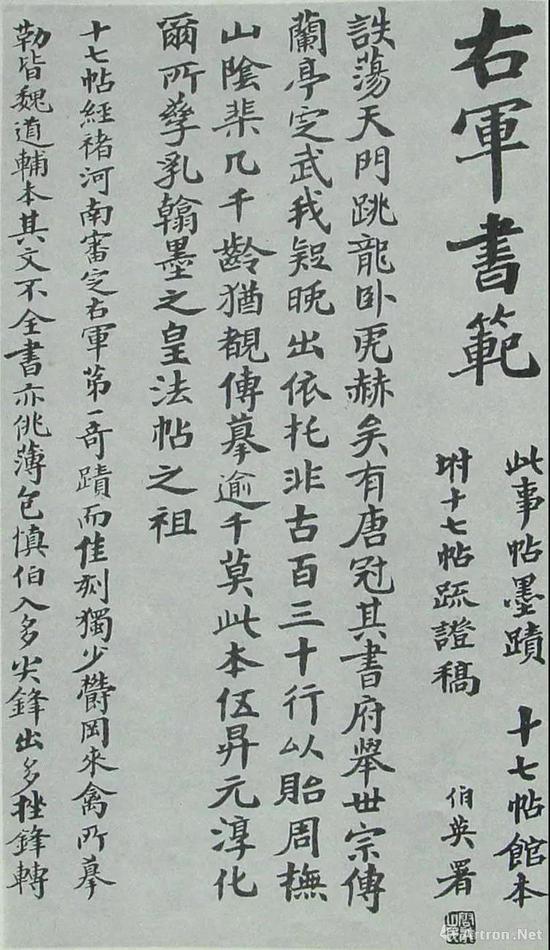 右軍書範
此事帖墨蹟 十七帖館本
附十七帖疏證稿
伯英署
詄蕩天門跳龍臥虎赫矣有唐冠其書府舉世宗傳
蘭亭定武我疑晚出依托非古百三十行以貽周撫
山陰棐几千齡猶覩傳摹逾千莫此本伍昇元淳化
爾所孳乳翰墨之皇法帖之祖
十七帖經褚河南審定右軍第一奇蹟而佳刻獨少欝岡來禽所摹
勒皆魏道輔本其文不全書亦佻薄包慎伯入多尖鋒出多挫鋒轉
Artron.Net